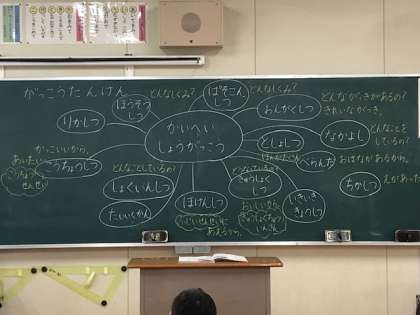 がっこうたんけん
どんなしくみ?
ほうそう
しつ
ぱそこん
しつ
どんなしくみ?
おんがくしつ
どんながっきがあるの?
きれいながっき。
りかしつ
かいへい
しょうがっこう
としょしつ
なかよし
どんなことを
しているの?
かっこいいから。
あいたい
こうちょうしつ
こうちょう
せんせい
どんなことしているの?
しょくいんしつ
きゅうしょく
しつ
くらんだ
おばけがあるから。
ちかしつ
えがあった
たいいくかん
ほけんしつ
あえるから。
おいしいから。
いきいき
きょうしつ